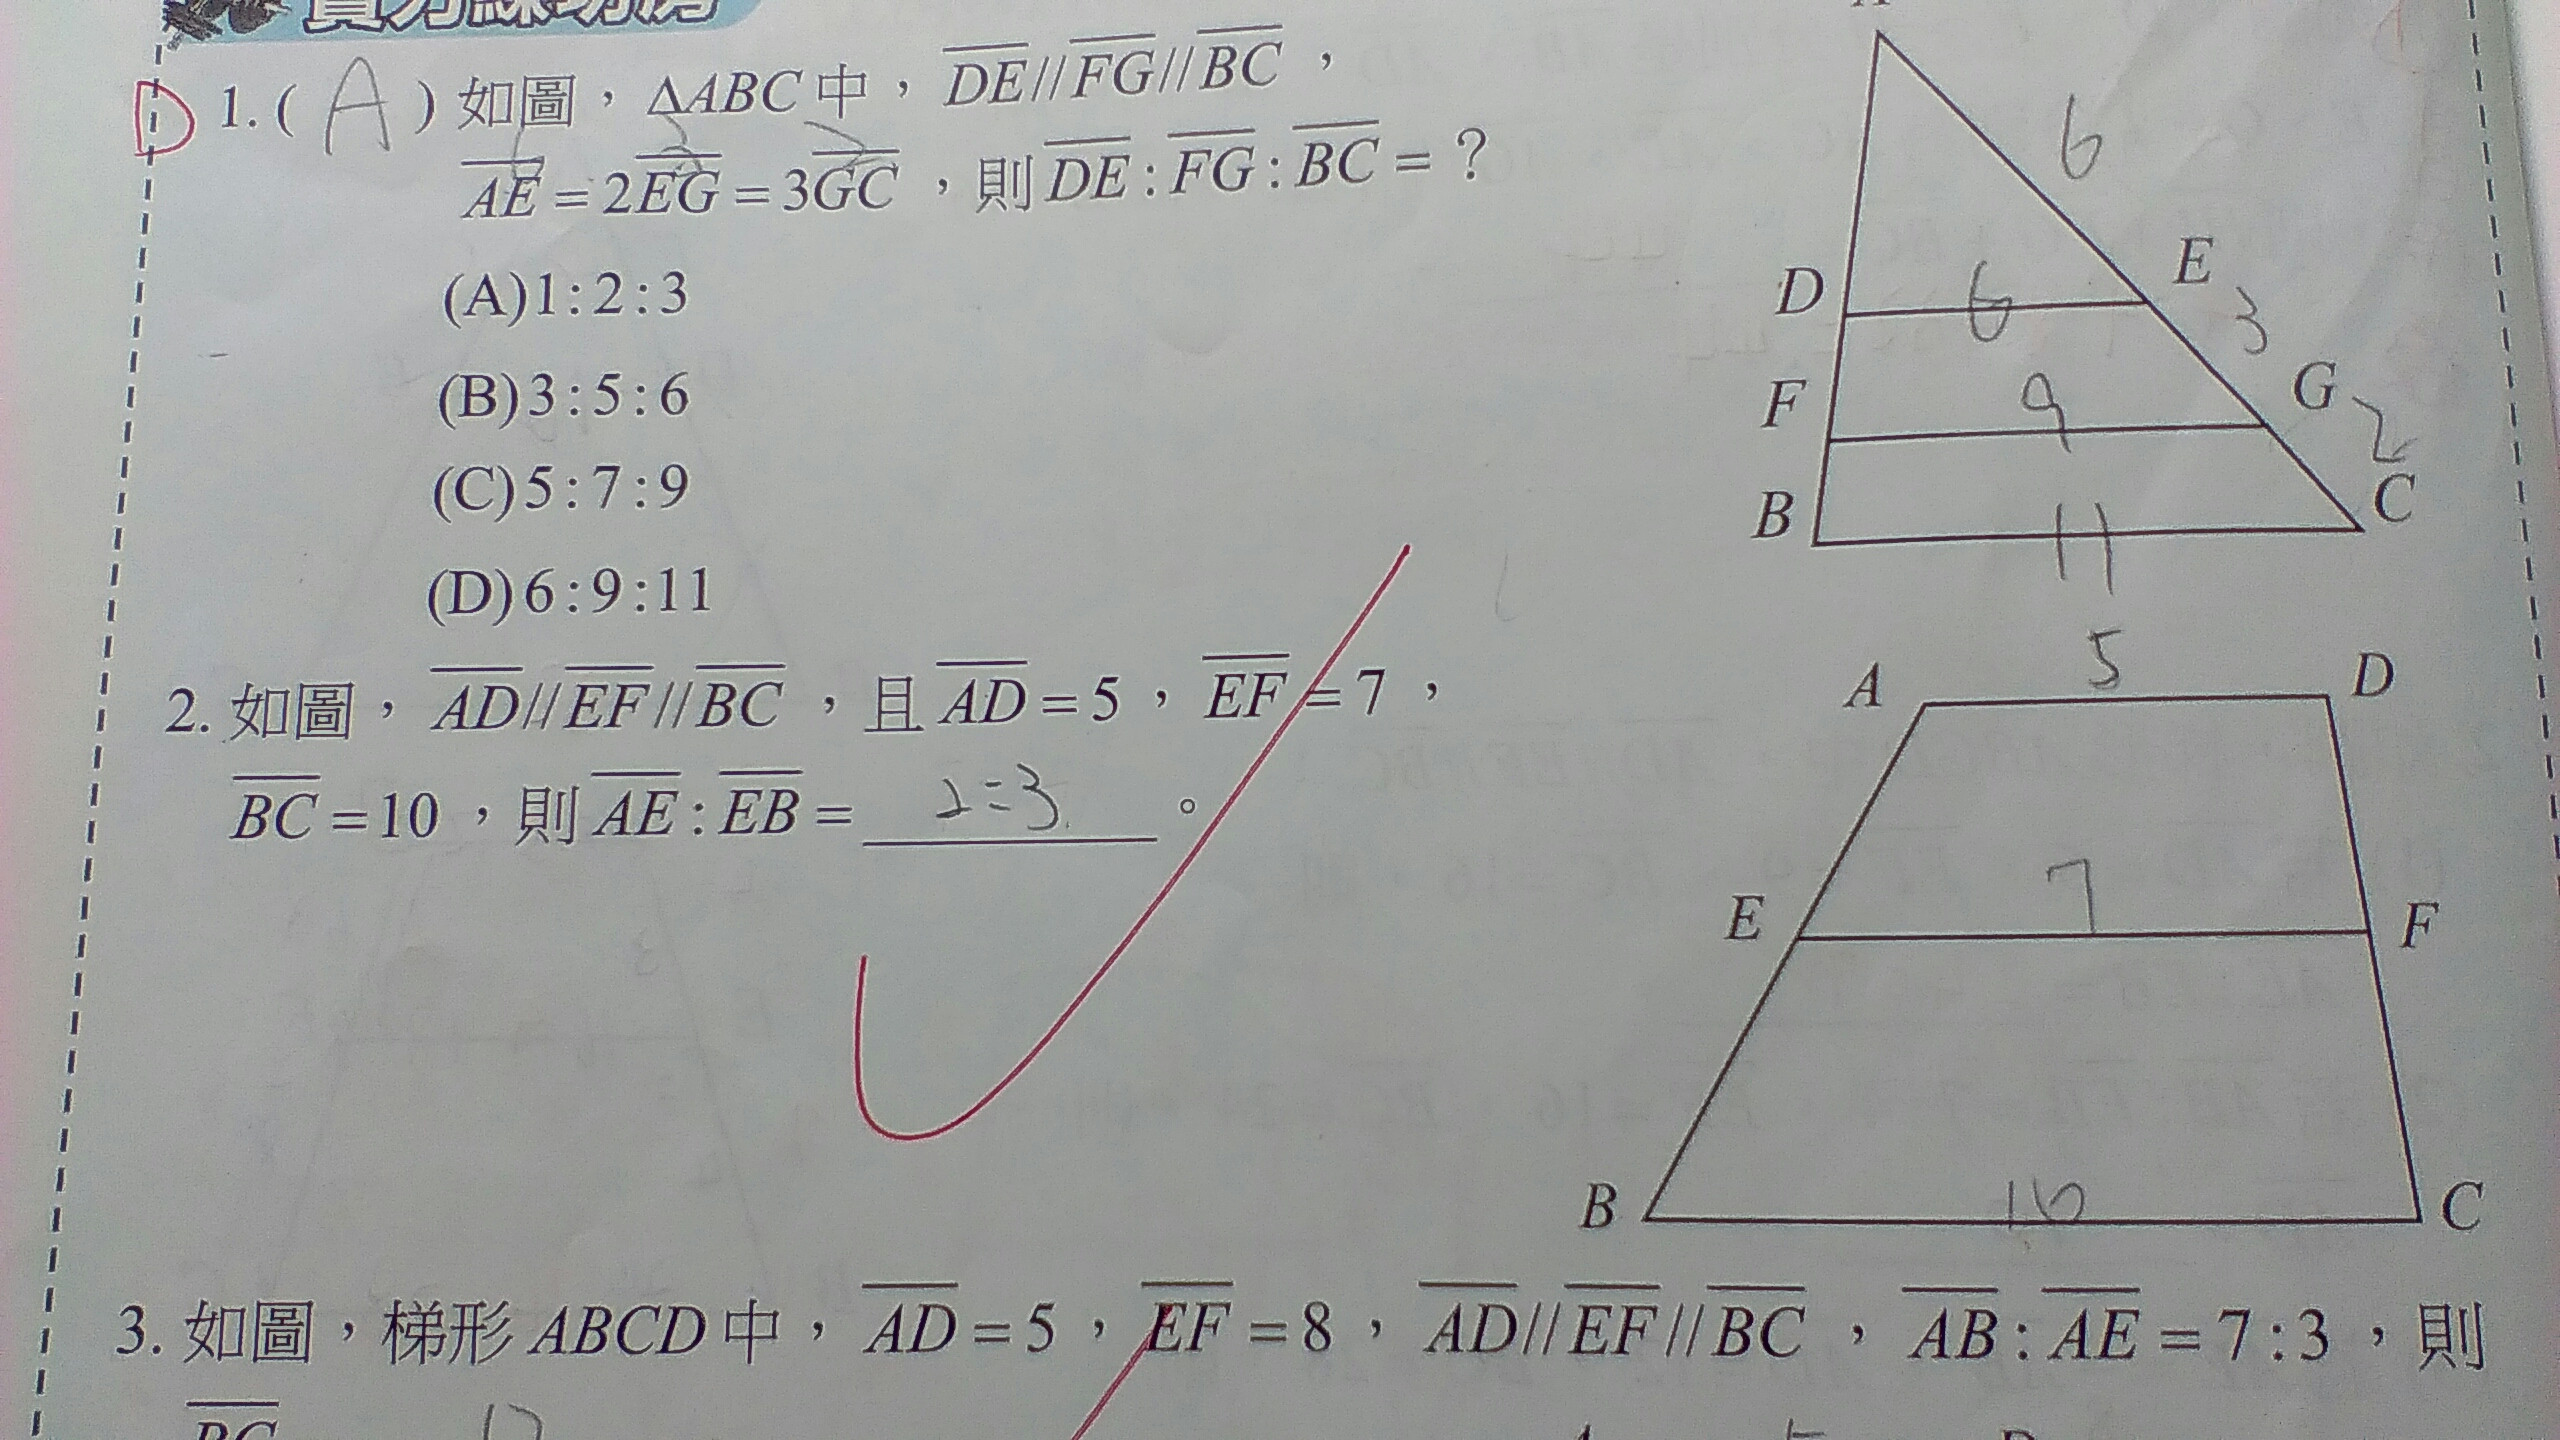 D 1. ( A ) 如圖，ΔABC中，DE//FG//BC，
AE=2EG=3GC，則DE:FG:BC=？
(A)1:2:3
(B)3:5:6
(C)5:7:9
(D)6:9:11
6
E
D
6
3
F
9
G
2
B
11
C
2. 如圖，AD//EF//BC，且AD=5，EF=7，
BC=10，則AE:EB= 2:3 。
5
A
D
E
7
F
B
10
C
3. 如圖，梯形ABCD中，AD=5，EF=8，AD//EF//BC，AB:AE=7:3，則
BC